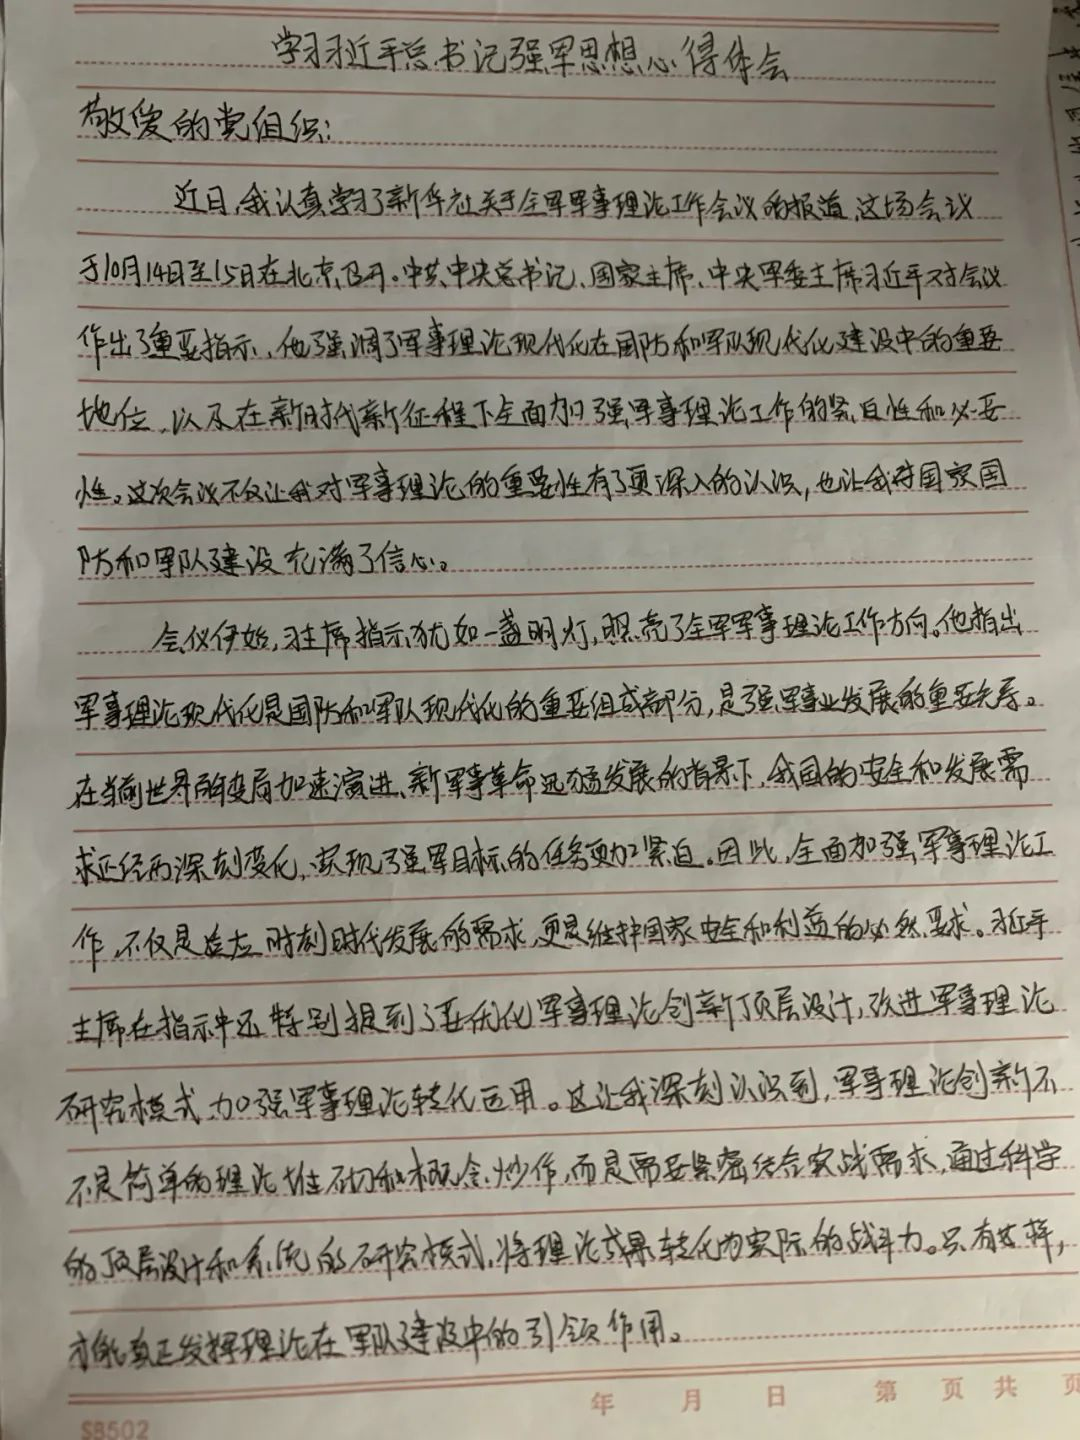 学习习近平总书记强军思想心得体会
敬爱的党组织:
近日,我认真学习了新华社关于全军军事理论工作会议的报道,这场会议
于10月14日至15日在北京召开。中共中央总书记、国家主席、中央军委主席习近平对会议
作出了重要指示,他强调了军事理论现代化在国防和军队现代化建设中的重要
地位,以及在新时代新征程下全面加强军事理论工作的紧迫性和必要
性。这次会议不仅让我对军事理论的重要性有了更深入的认识,也让我对国家国
防和军队建设充满了信心。
会议伊始,习主席指示犹如一盏明灯,照亮了全军军事理论工作方向。他指出
军事理论现代化是国防和军队现代化的重要组成部分,是强军事业发展的重要先导。
在当前世界百年变局加速演进、新军事革命迅猛发展的背景下,我国的安全和发展需
求正经历深刻变化,实现强军目标的任务更加紧迫。因此,全面加强军事理论工
作,不仅是 时刻时代发展的需求,更是维护国家安全和利益的必然要求。习近平
主席在指示中还特别提到了要优化军事理论创新顶层设计,改进军事理论
研究模式,加强军事理论转化运用。这让我深刻认识到,军事理论创新不
不是简单的理论堆砌和概念炒作,而是需要紧密结合实战需求,通过科学
的顶层设计和系统的研究模式,将理论成果转化为实际的战斗力。只有这样,
才能真正发挥理论在军队建设中的引领作用。
年 月 日 第 页 共 页
SB502